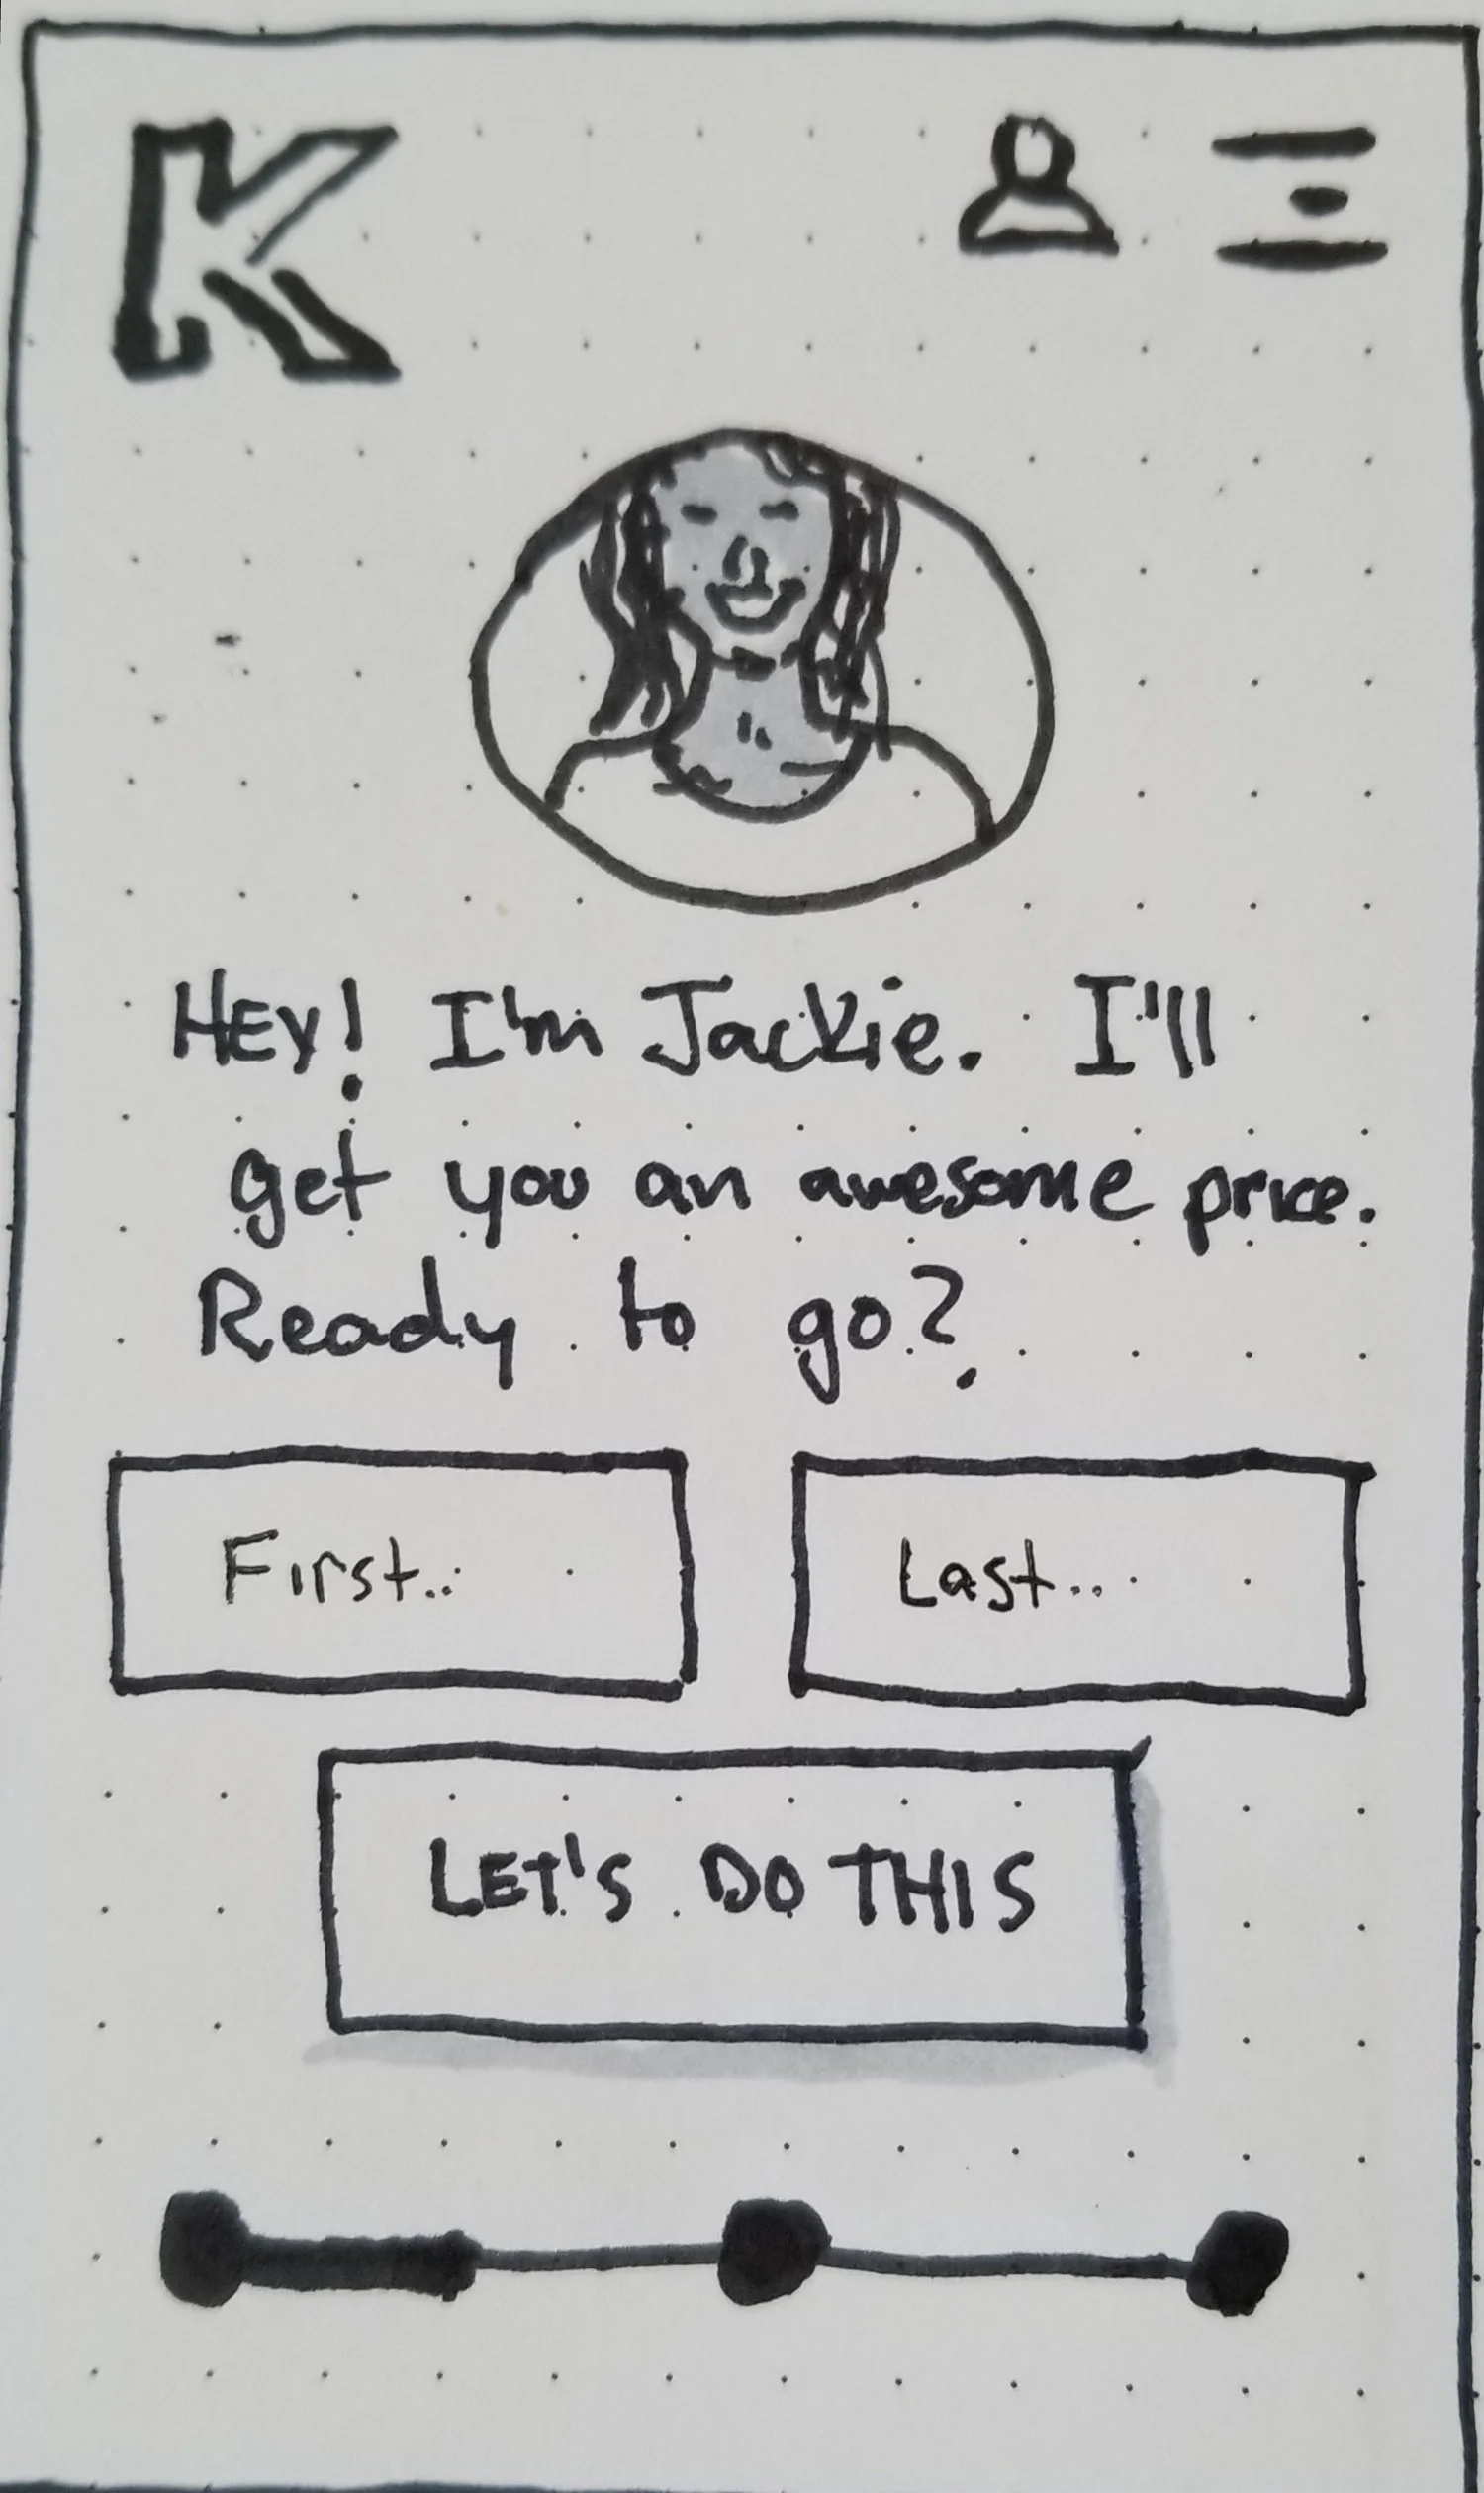 K
HEY! I'm Jackie. I'll
get you an awesome price.
Ready to go?
First...
Last...
LET'S DO THIS